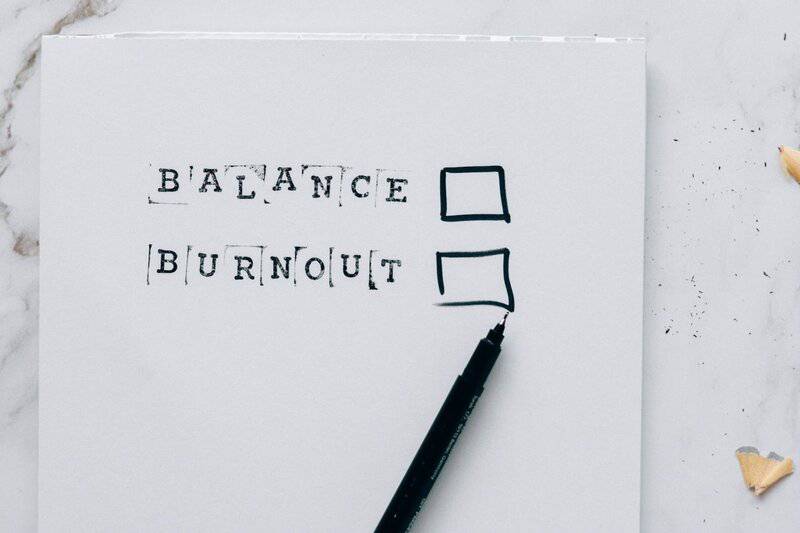 BALANCE
BURNOUT